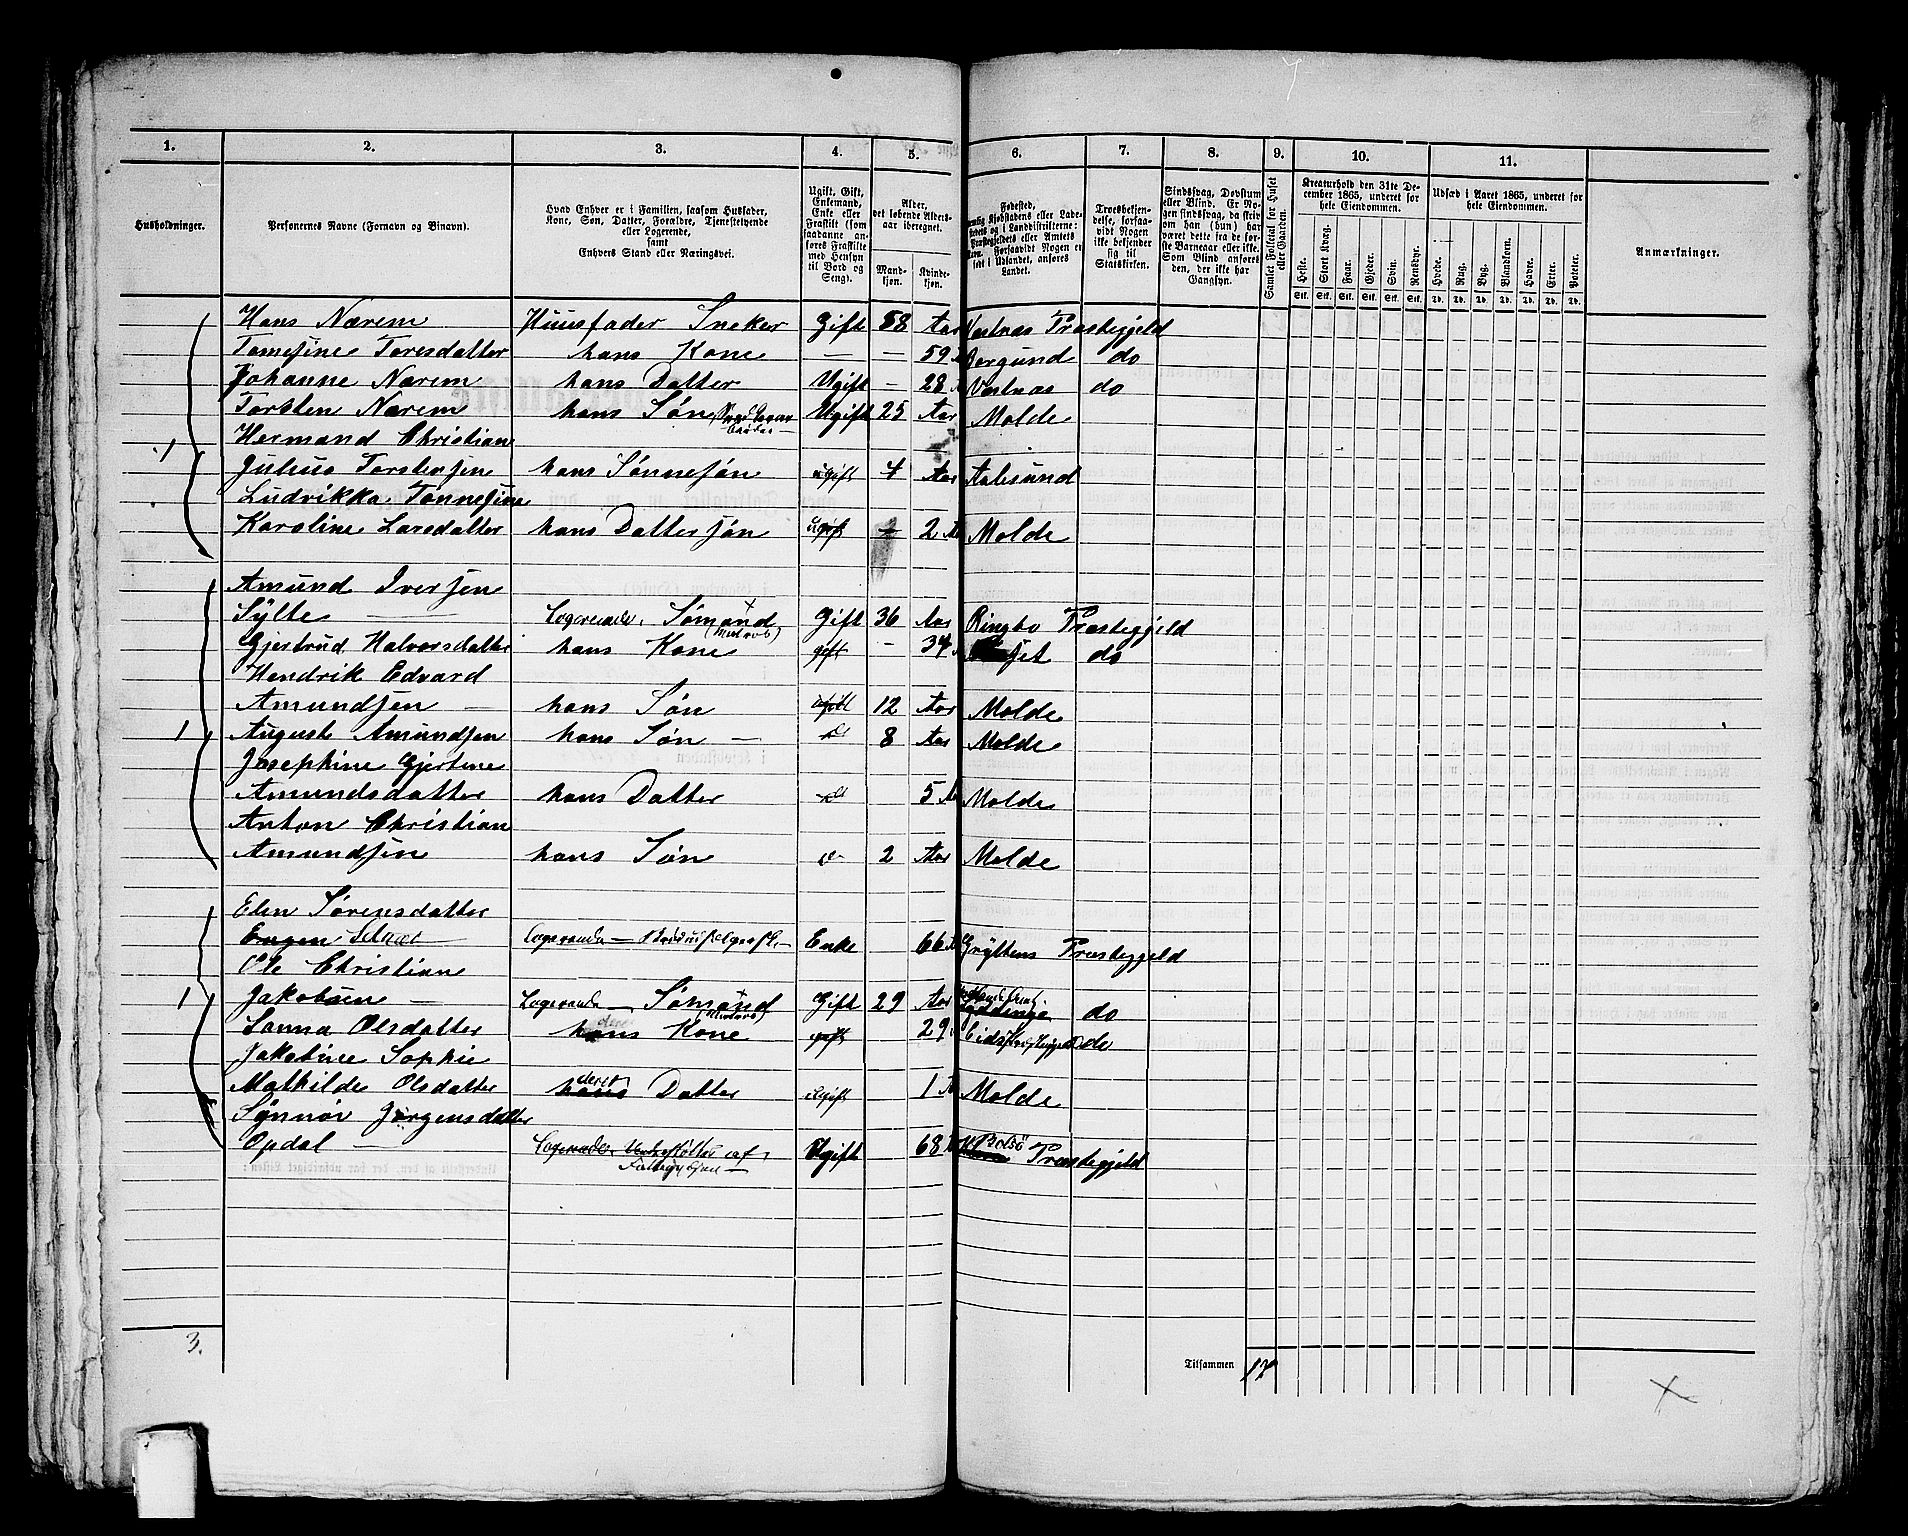 1. 2. 3. 4. 5. 6. 7. 8. 9. 10. 11.
Husholdninger.
Personernes Navne (Fornavn og Binavn).
Hvad Enhver er i Familien, saasom Husfader,
Kone, Søn, Datter, Forældre, Tjenestetyende
eller Logerende,
samt
Enhvers Stand eller Næringsvei.
Ugift, Gift,
Enkemand,
Enke eller
Fraskilt (som
saadanne an-
føres Fraskilte
med Hensyn
til Bord og
Seng).
Alder,
det løbende Alders-
aar iberegnet.
Mand-
kjøn.
Kvinde-
kjøn.
Fødested,
Kjøbstadens eller Lade-
stedets og i Landdistrikterne:
Præstegjeldets eller Amtets
Navn. Forsaavidt Nogen er
født i Udlandet, anføres
Landet.
Troesbekjen-
delse, forsaa-
vidt Nogen
ikke bekjender
sig til
Statskirken.
Sindssvag, Døvstum
eller Blind. Er No-
gen sindssvag, da skriv
om han (hun) har
været dette fra de før-
ste Barneaar eller ikke.
Som Blind anføres
den, der ikke har
Gangsyn.
Samlet Folketal for Huset
eller Gaarden.
Kreaturhold den 31te De-
cember 1865, underet for
hele Eiendommen.
Heste. Stort Kvæg. Faar. Gjeder. Svin. Rensdyr.
Stk. Stk. Stk. Stk. Stk. Stk.
Udsæd i Aaret 1865, underet for
hele Eiendommen.
Hvede. Rug. Byg. Blandkorn. Havre. Erter. Poteter.
Td. Td. Td. Td. Td. Td. Td.
Anmærkninger.
Hans Nærem Huusfader Sneker Gift 58 Aar Vestnæs Præstegjeld
Tomesine Toresdatter hans Kone — — 59 Borgund do
Johanne Nærem hans Datter Ugift - 28 Vestnæs do
Torsten Nærem hans Søn Ugift 25 Aar Molde
Hermand Christian
1 Julius Torstensen hans Sønnesøn ugift 4 Aar Aalesund
Ludvikka Tonnesine
Karoline Larsdatter hans Dattersøn ugift 2 Aar Molde
Amund Iversen
Sylte — Logerende, Sømand Gift 36 Aar Ringbo Præstegjeld
Gjertrud Halvorsdatter hans Kone gift - 34 do
Hendrik Edvard
Amundsen — hans Søn ugift 12 Aar Molde
1 Auguste Amundsen hans Søn — do 8 Aar Molde
Josephine Gjertine
Amundsdatter hans Datter do 5 Molde
Anton Christian
Amundsen hans Søn 2 Aar Molde
Elen Sørensdatter
Logerende — Enke 66 Gryttens Præstegjeld
Ole Christian
1 Jakobsen — Logerende — Sømand Gift 29 Aar do
Sanna Olsdatter hans Kone gift 29 do
Jakobine Sophie
Mathilde Olsdatter deres Datter Ugift 1 Molde
Synnøv Jørgensdatter
Opdal — Logerende, Understøttes af Ugift 68 Bolsø Præstegjeld
3. Tilsammen 17